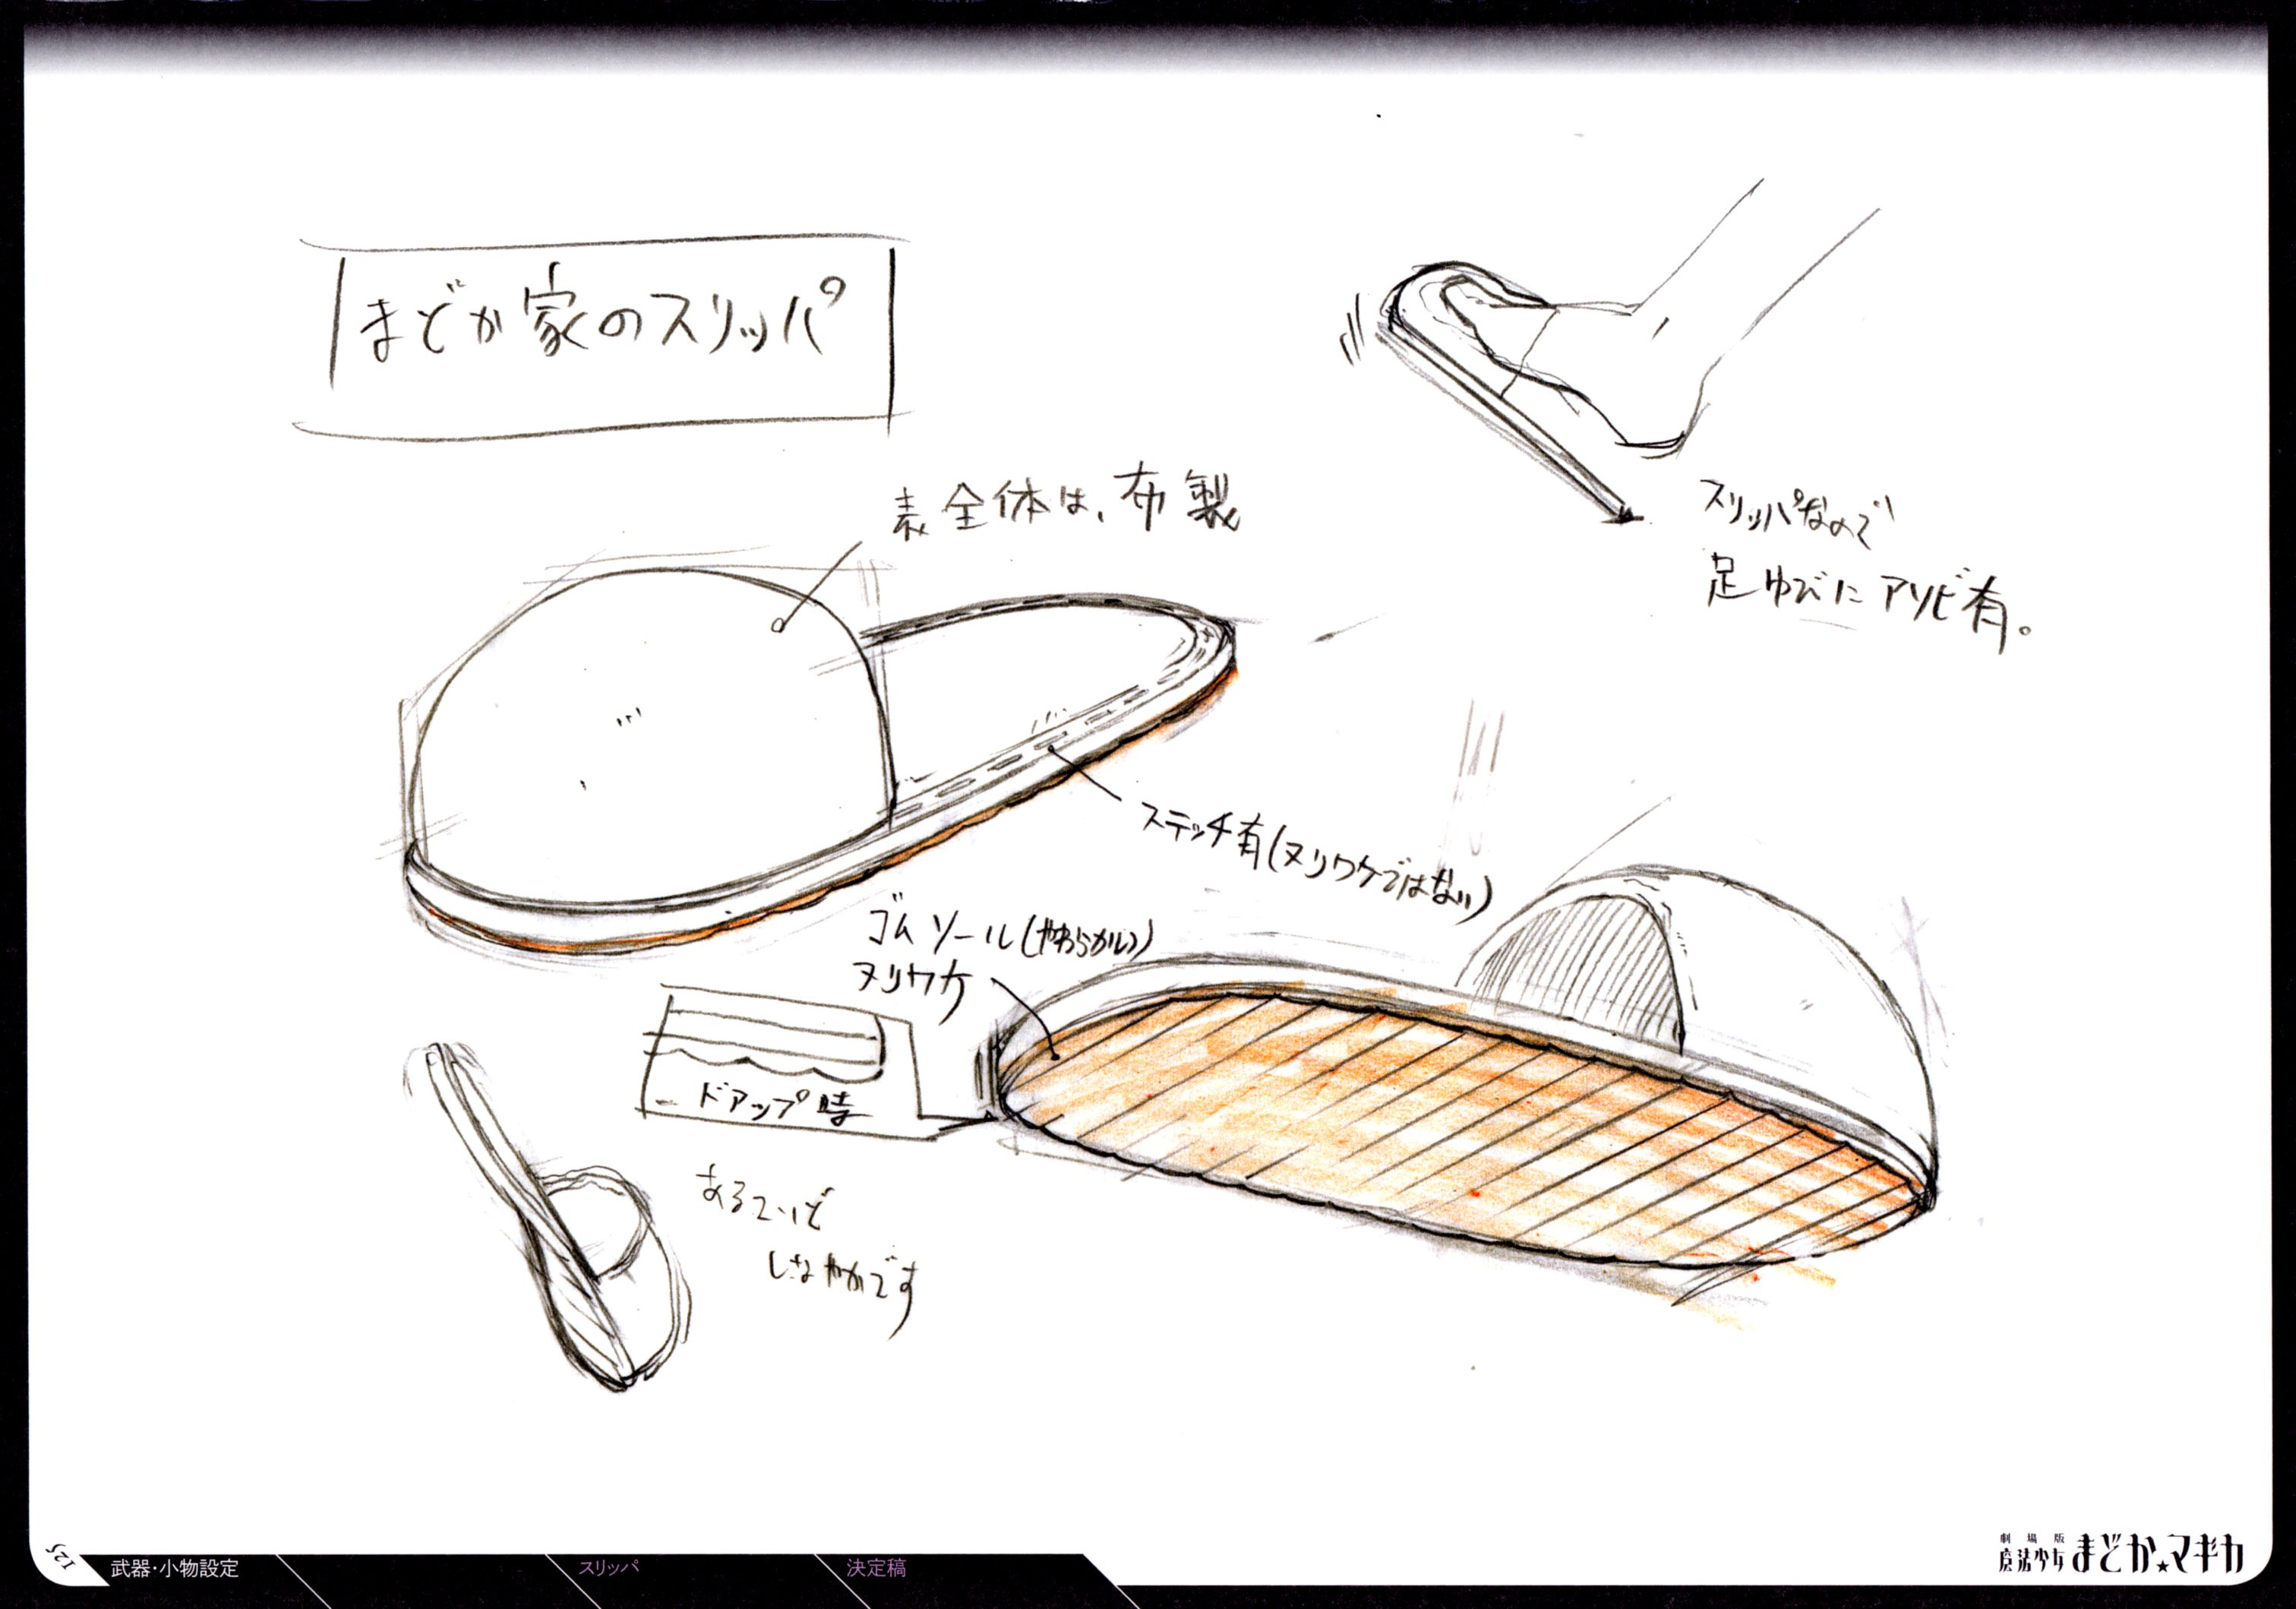 まどか家のスリッパ
スリッパなので
足ゆびにアソビ有。
表全体は、布製
ステッチ有(ヌリワケではない)
ゴムソール(やわらかい)
ヌリワケ
ドアップ時
あるていど
しなやかです
125
武器・小物設定
スリッパ
決定稿
劇場版
魔法少女まどか★マギカ